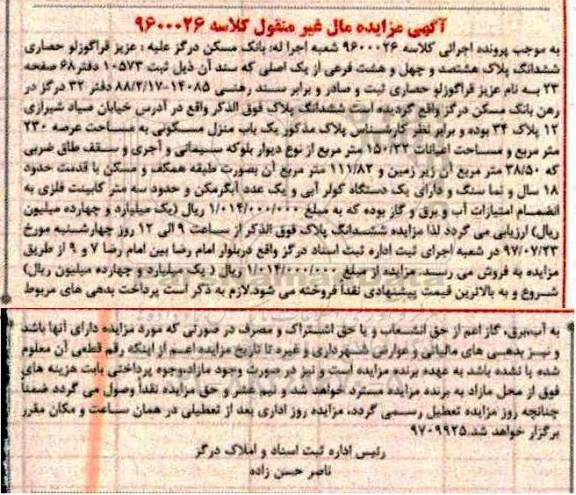 آگهی مزایده مال غیر منقول کلاسه ۹۶۰۰۰۲۶
به موجب پرونده اجرائی کلاسه ۹۶۰۰۰۲۶ شعبه اجرا له: بانک مسکن درگز علیه : عزیز قراگوزلو حصاری
ششدانگ پلاک هشتصد و چهل و هشت فرعی از یک اصلی که سند آن ذیل ثبت ۱۰۵۷۳ دفتر ۶۸ صفحه
۲۳ به نام عزیز قراگوزلو حصاری ثبت و صادر و برابر سند رهنی ۱۴۰۸۵-۸۸/۲/۱۷ دفتر ۳۲ درگز در
رهن بانک مسکن درگز واقع گردیده است ششدانگ پلاک فوق الذکر واقع در آدرس خیابان صیاد شیرازی
۱۲ پلاک ۳۴ بوده و برابر نظر کارشناس پلاک مذکور یک باب منزل مسکونی به مساحت عرصه ۲۳۰
متر مربع و مساحت اعیانات ۱۵۰/۳۲ متر مربع از نوع دیوار بلوکه سیمانی و آجری و سقف طاق ضربی
که ۳۸/۵۰ متر مربع آن زیر زمین و ۱۱۱/۸۲ متر مربع آن بصورت طبقه همکف و مسکن با قدمت حدود
۱۸ سال و نما سنگ و دارای یک دستگاه کولر آبی و یک عدد آبگرمکن و حدود سه متر کابینت فلزی به
انضمام امتیازات آب و برق و گاز بوده که به مبلغ ۱/۰۱۴/۰۰۰/۰۰۰ ریال (یک میلیارد و چهارده میلیون
ریال) ارزیابی می گردد لذا مزایده ششدانگ پلاک فوق الذکر از ساعت ۹ الی ۱۲ روز چهارشنبه مورخ
۹۷/۰۷/۲۳ در شعبه اجرای ثبت اداره ثبت اسناد درگز واقع دربلوار امام رضا بین امام رضا ۷ و ۹ از طریق
مزایده به فروش می رسد. مزایده از مبلغ ۱/۰۱۴/۰۰۰/۰۰۰ ریال ( یک میلیارد و چهارده میلیون ریال)
شروع و به بالاترین قیمت پیشنهادی نقداً فروخته می شود.لازم به ذکر است پرداخت بدهی های مربوط
به آب،برق، گاز اعم از حق انشعاب و یا حق اشتراک و مصرف در صورتی که مورد مزایده دارای آنها باشد
و نیز بدهی های مالیاتی و عوارض شهرداری و غیره تا تاریخ مزایده اعم از اینکه رقم قطعی آن معلوم
شده یا نشده باشد به عهده برنده مزایده است و نیز در صورت وجود مازاد،وجوه پرداختی بابت هزینه های
فوق از محل مازاد به برنده مزایده مسترد خواهد شد و نیم عشر و حق مزایده نقداً وصول می گردد ضمناً
چنانچه روز مزایده تعطیل رسمی گردد، مزایده روز اداری بعد از تعطیلی در همان ساعت و مکان مقرر
برگزار خواهد شد.۹۷۰۹۹۲۵
رئیس اداره ثبت اسناد و املاک درگز
ناصر حسن زاده